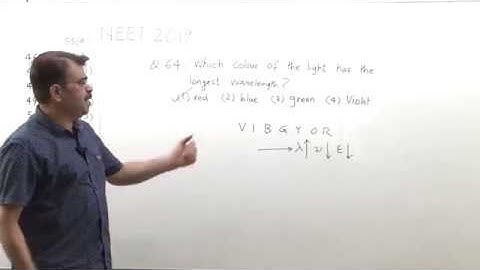 NEET 2019
Q 64 Which colour of the light has the
longest wavelength?
(1) red (2) blue (3) green (4) Violet
V I B G Y O R
→ λ↑ ν↓ E↓